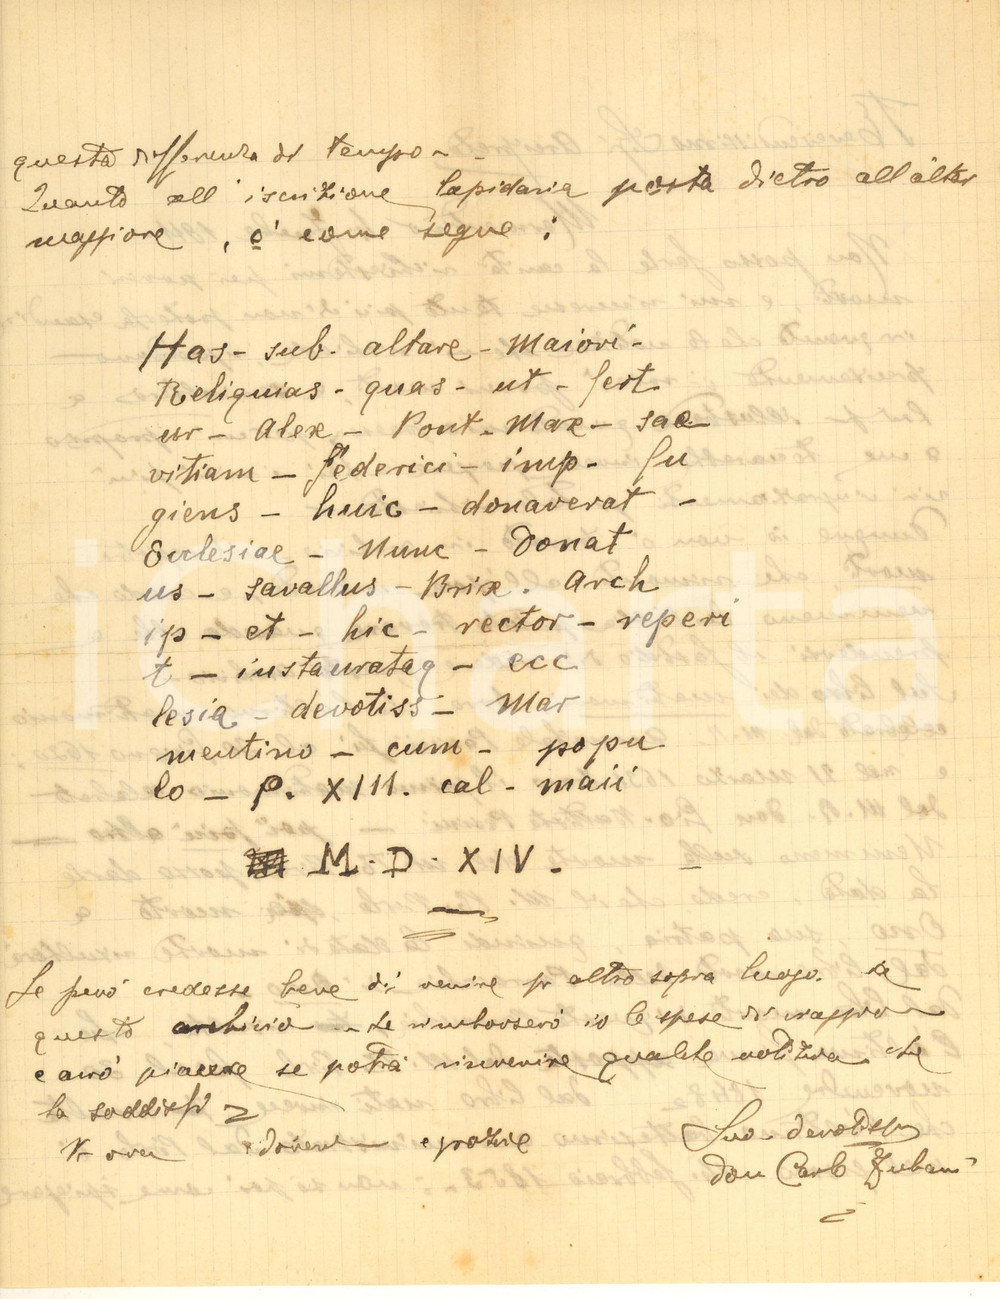 questa differenza di tempo -
Quanto all'iscrizione lapidaria posta dietro all'altar
maggiore, è come segue:
Has - sub - altare - Maiori -
Reliquias - quas - ut - fert
ur - Alex - Pont - Max - sae
vitiam - Federici - imp - fu
giens - huic - donaverat -
Ecclesiae - Nunc - Donat
us - savallus - Brix. Arch
ip - et - hic - rector - reperi
t - instaurataq - ecc
lesia - devotiss - Mar
mentino - cum - popu
lo - P. XIII. cal - maii
M. D. XIV. -
Se però credesse bene di venire per altro sopra luogo. in
questo archivio le rimborserò io le spese di viaggio
e avrò piacere se potrà rinvenire qualche notizia che
la soddisfi
doveri e grazie
Suo devotiss
don Carlo Zubani